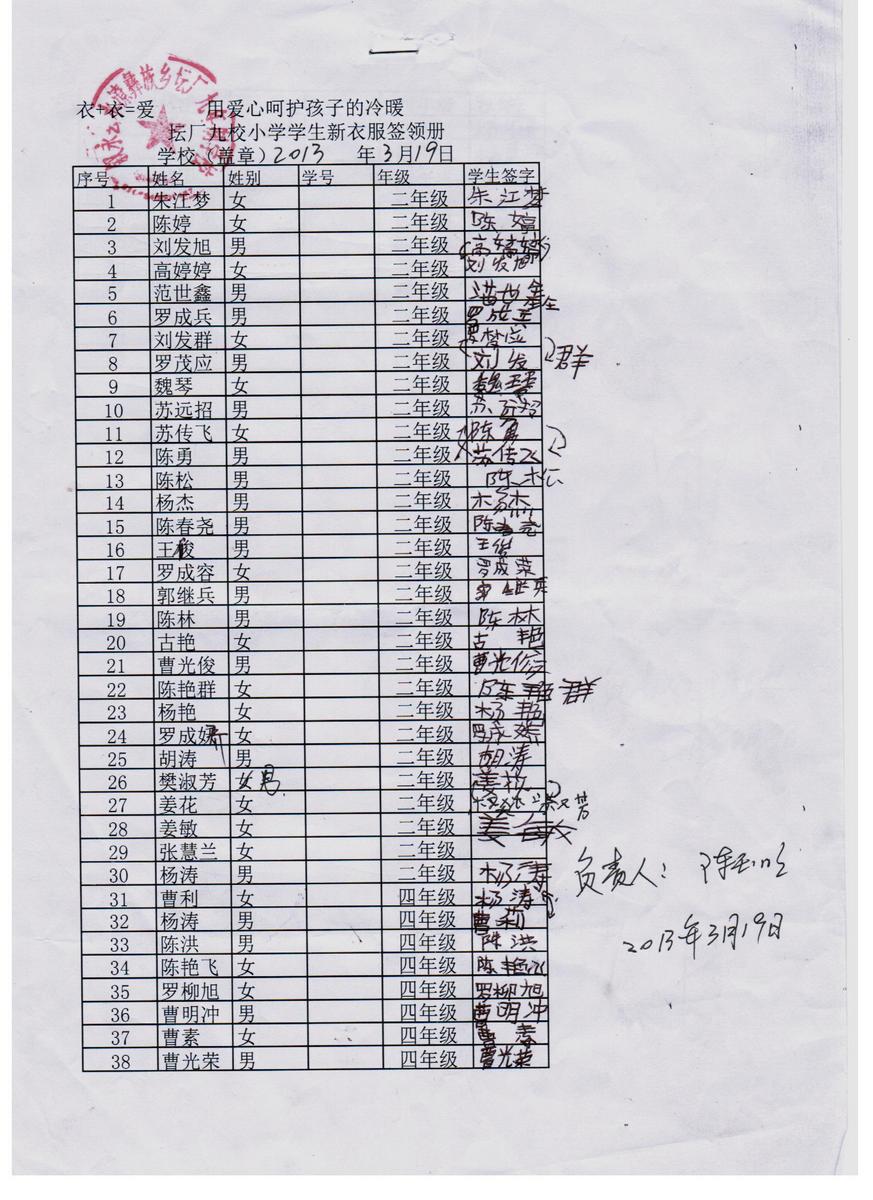 衣+衣=爱 用爱心呵护孩子的冷暖
坛厂九校小学学生新衣服签领册
学校（盖章）2013 年3月19日
序号 姓名 姓别 学号 年级 学生签字
1 朱江梦 女 二年级 朱江梦
2 陈婷 女 二年级 陈婷
3 刘发旭 男 二年级 高婷婷
4 高婷婷 女 二年级 刘发旭
5 范世鑫 男 二年级 世鑫
6 罗成兵 男 二年级 罗成兵
7 刘发群 女 二年级 应
8 罗茂应 男 二年级 刘发群
9 魏琴 女 二年级 魏琴
10 苏远招 男 二年级 苏远招
11 苏传飞 女 二年级 陈勇
12 陈勇 男 二年级 苏传飞
13 陈松 男 二年级 陈松
14 杨杰 男 二年级 杨杰
15 陈春尧 男 二年级 陈春尧
16 王俊 男 二年级 王俊
17 罗成容 女 二年级 罗成荣
18 郭继兵 男 二年级 郭继兵
19 陈林 男 二年级 陈林
20 古艳 女 二年级 古艳
21 曹光俊 男 二年级 曹光俊
22 陈艳群 女 二年级 陈艳群
23 杨艳 女 二年级 杨艳
24 罗成娇 女 二年级 罗成
25 胡涛 男 二年级 胡涛
26 樊淑芳 女 男 二年级 姜花
27 姜花 女 二年级 樊淑芳
28 姜敏 女 二年级 姜敏
29 张慧兰 女 二年级
30 杨涛 男 二年级 杨涛
负责人：陈
31 曹利 女 四年级 杨涛
32 杨涛 男 四年级 曹利
2013年3月19日
33 陈洪 男 四年级 陈洪
34 陈艳飞 女 四年级 陈艳飞
35 罗柳旭 女 四年级 罗柳旭
36 曹明冲 男 四年级 曹明冲
37 曹素 女 四年级 曹素
38 曹光荣 男 四年级 曹光荣